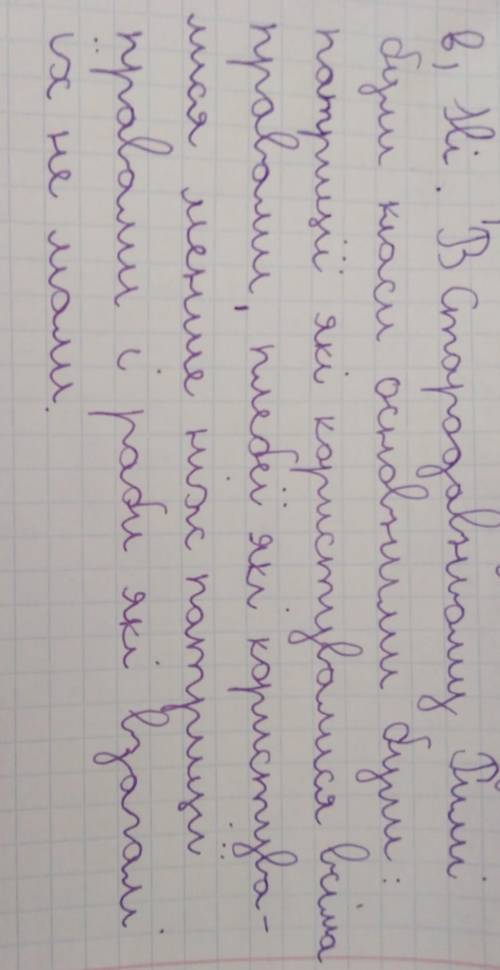 в) Ні. В Стародавньому Римі
були класи основними були:
патриції які користувалися всіма
правами, плебеї які користува-
лися менше ніж патриції
правами і раби які взагалі
їх не мали.